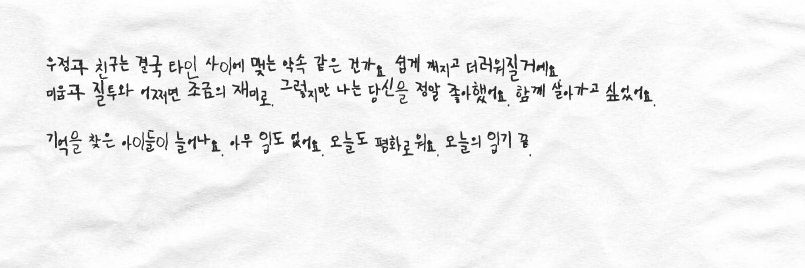 우정과 친구는 결국 타인 사이에 맺는 약속 같은 건가요 쉽게 깨지고 더러워질거예요
미움과 질투와 어쩌면 조금의 재미로. 그렇지만 나는 당신을 정말 좋아했어요. 함께 살아가고 싶었어요.
기억을 찾은 아이들이 늘어나요. 아무 일도 없어요. 오늘도 평화로워요. 오늘의 일기 끝.